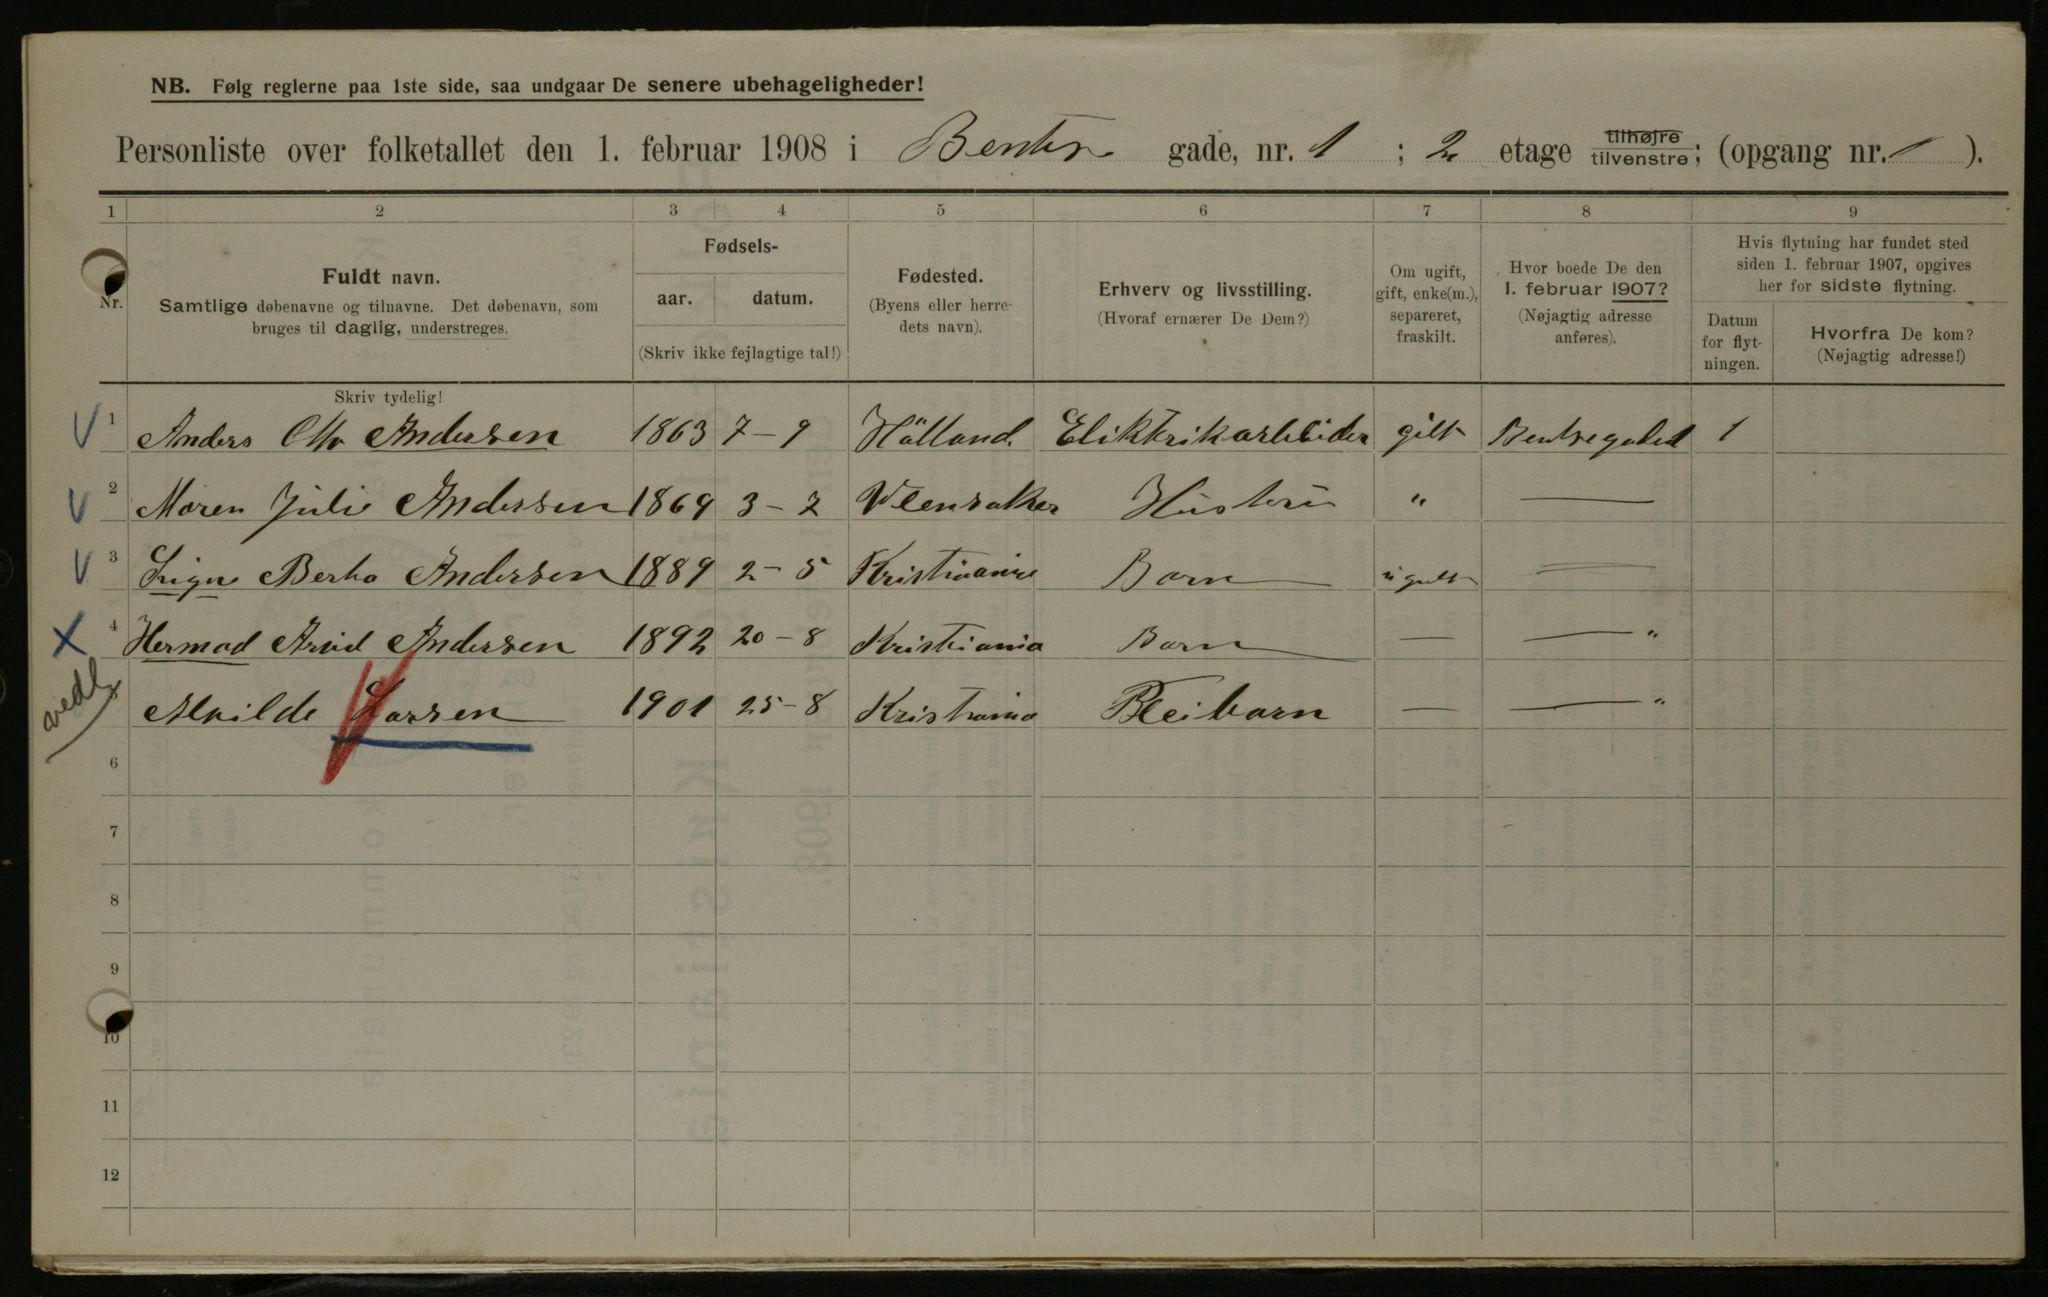 NB. Følg reglerne paa 1ste side, saa undgaar De senere ubehageligheder!
Personliste over folketallet den 1. februar 1908 i Bentse gade, nr. 1 ; 2 etage tilhøjre tilvenstre; (opgang nr. 1 ).
1 2 3 4 5 6 7 8 9
Nr.
Fuldt navn.
Samtlige døbenavne og tilnavne. Det døbenavn, som
bruges til daglig, understreges.
Fødsels-
aar. datum.
(Skriv ikke fejlagtige tal!)
Fødested.
(Byens eller herre-
dets navn).
Erhverv og livsstilling.
(Hvoraf ernærer De Dem?)
Om ugift,
gift, enke(m.),
separeret,
fraskilt.
Hvor boede De den
1. februar 1907?
(Nøjagtig adresse
anføres).
Hvis flytning har fundet sted
siden 1. februar 1907, opgives
her for sidste flytning.
Datum
for flyt-
ningen.
Hvorfra De kom?
(Nøjagtig adresse!)
Skriv tydelig!
1 Anders Otto Andersen 1863 7-9 Hålland. Elektrikarbeider gift Bentsegaden 1
2 Maren Julie Andersen 1869 3-2 Ullensaker Hustru " —
3 Signe Berta Andersen 1889 2-5 Kristiania Barn ugift —
4 Hermod Arvid Andersen 1892 20-8 Kristiania Barn — — "
vedl. Alvilde Larsen 1901 25-8 Kristiania Pleibarn — — "
6
7
8
9
10
11
12